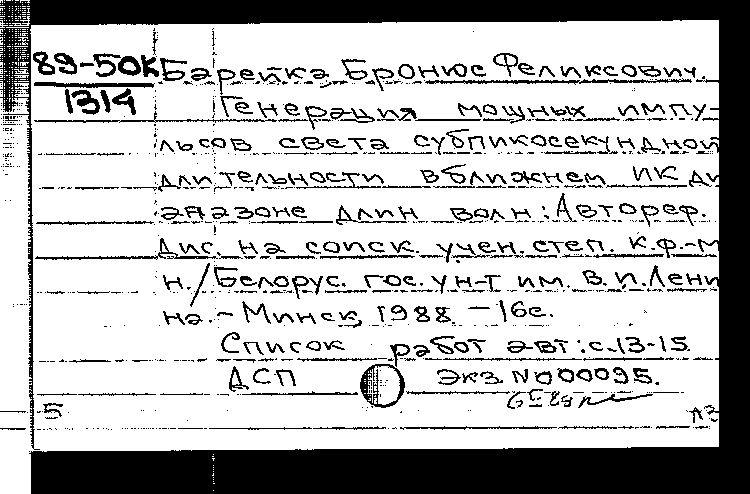 89-50К Барейка, Бронюс Феликсович.
1314 Генерация мощных импу-
льсов света субпикосекундной
длительности в ближнем ИК ди
апазоне длин волн: Автореф.
дис. на соиск. учен. степ. к.ф.-м
н./Белорус. гос. ун-т им. В.И.Лени
на.-Минск, 1988 -16с.
Список работ авт: с.13-15.
ДСП Экз. N000095.
5